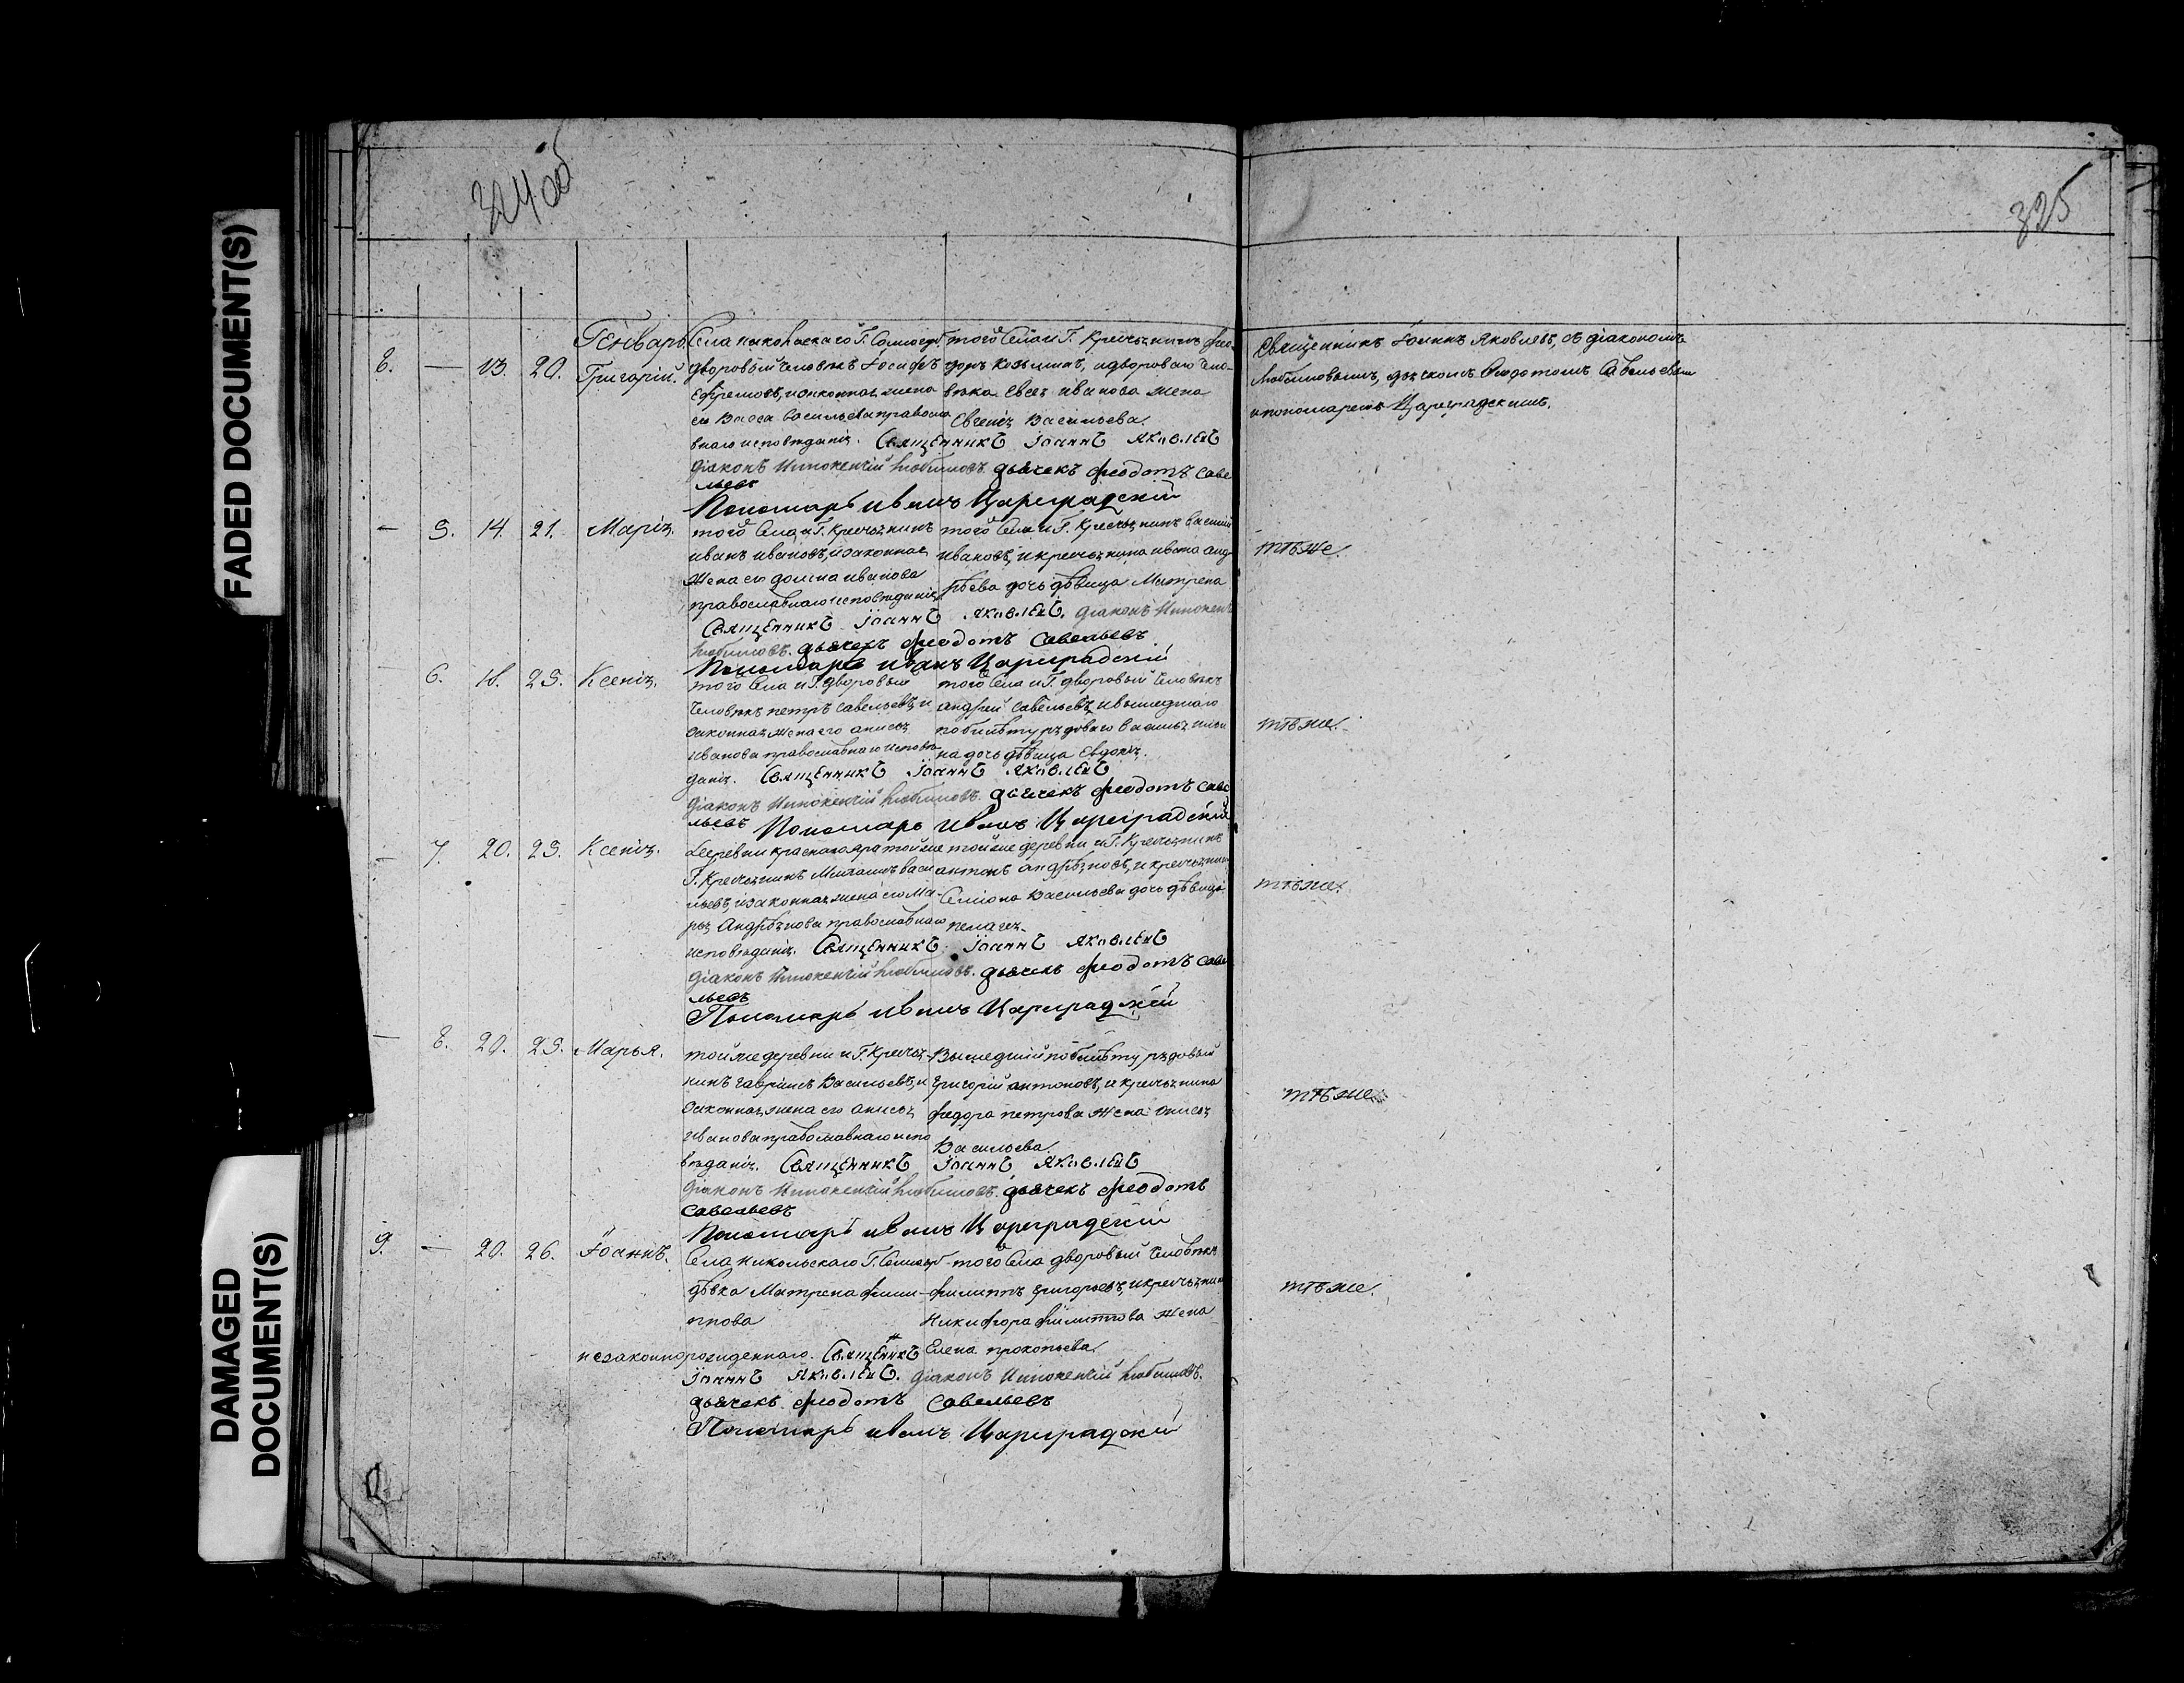 324 об
325
FADED DOCUMENT(S)
DAMAGED
DOCUMENT(S)
Генварь
8. — 13. 20. Григорій.
Села Никольскаго Г.
дворовый человѣкъ Іосифъ
Ефремовъ, и законная жена
его Васса Васильева правосла
внаго исповѣданія. Священникъ Іоаннъ Яковлевъ
Діаконъ Иннокентій Любимовъ. дьячекъ Феодотъ Саве
льевъ
Пономарь Иванъ Цареградскій
того Села и Г. Крестьянинъ Фео
доръ Козминъ, и двороваго чело-
вѣка Евсея Иванова жена
Евгенія Васильева.
Священникъ Іоаннъ Яковлевъ, съ діакономъ
Любимовымъ, дьячкомъ Федотомъ Савельевым
и пономаремъ Цареградскимъ.
— 5. 14. 21. Марія.
того Села и Г. Крестьянинъ
Иванъ Ивановъ, и законная
жена его Домна Иванова
православнаго исповѣданія.
Священникъ Іоаннъ Яковлевъ. Діаконъ Иннокен
Любимовъ. дьячекъ Феодотъ Савельевъ
Пономарь Иванъ Цареградскій
того Села и Г. Крестьянинъ Василій
Ивановъ, и крестьянина Ивана Анд
рѣева дочь дѣвица Матрена
тѣже.
6. 18. 25. Ксенія.
того Села и Г. дворовый
человѣкъ Петръ Савельевъ, и
законная жена его Анисья
Иванова православнаго исповѣ
данія. Священникъ Іоаннъ Яковлевъ
Діаконъ Иннокентій Любимовъ. дьячекъ Феодотъ Саве
льевъ Пономарь Иванъ Цареградскій
того Села и Г. дворовый человѣкъ
Андрей Савельевъ, и вышедшаго
по билѣту рядоваго Василья
на дочь дѣвица Евдокія.
тѣже.
— 7. 20. 25. Ксенія.
Деревни Краснаго яра той же
Г. Крестьянинъ Михаилъ Васи
льевъ, и законная жена его Ма-
рья Андрѣянова православнаго
исповѣданія. Священникъ Іоаннъ Яковлевъ
Діаконъ Иннокентій Любимовъ. дьячекъ Феодотъ Саве
льевъ
Пономарь Иванъ Цареградскій
той же деревни и Г. Крестьянинъ
Антонъ Андрѣяновъ, и крестьянин
Семіона Васильева дочь дѣвица
Пелагея.
тѣже.
— 8. 20. 25. Марья.
той же деревни и Г. Крестья-
нинъ Гавріилъ Васильевъ, и
законная жена его Анисья
Иванова православнаго испо
вѣданія. Священникъ Іоаннъ Яковлевъ
Діаконъ Иннокентій Любимовъ. дьячекъ Феодотъ
Савельевъ
Пономарь Иванъ Цареградскій
Вышедшій по билѣту рядовый
Григорій Антоновъ, и крестьянина
Федора Петрова жена Анисья
Васильева.
тѣже.
9. — 20. 26. Іоаннъ.
Села Никольскаго Г.
дѣвка Матрена Фили-
ппова
незаконнорожденнаго. Священникъ
Іоаннъ Яковлевъ. Діаконъ Иннокентій Любимовъ.
дьячекъ Феодотъ Савельевъ
Пономарь Иванъ Цареградскій
того Села дворовый человѣкъ
Филиппъ Григорьевъ, и крестьянин
Никифора Филиппова жена
Елена Прокопьева.
тѣже.